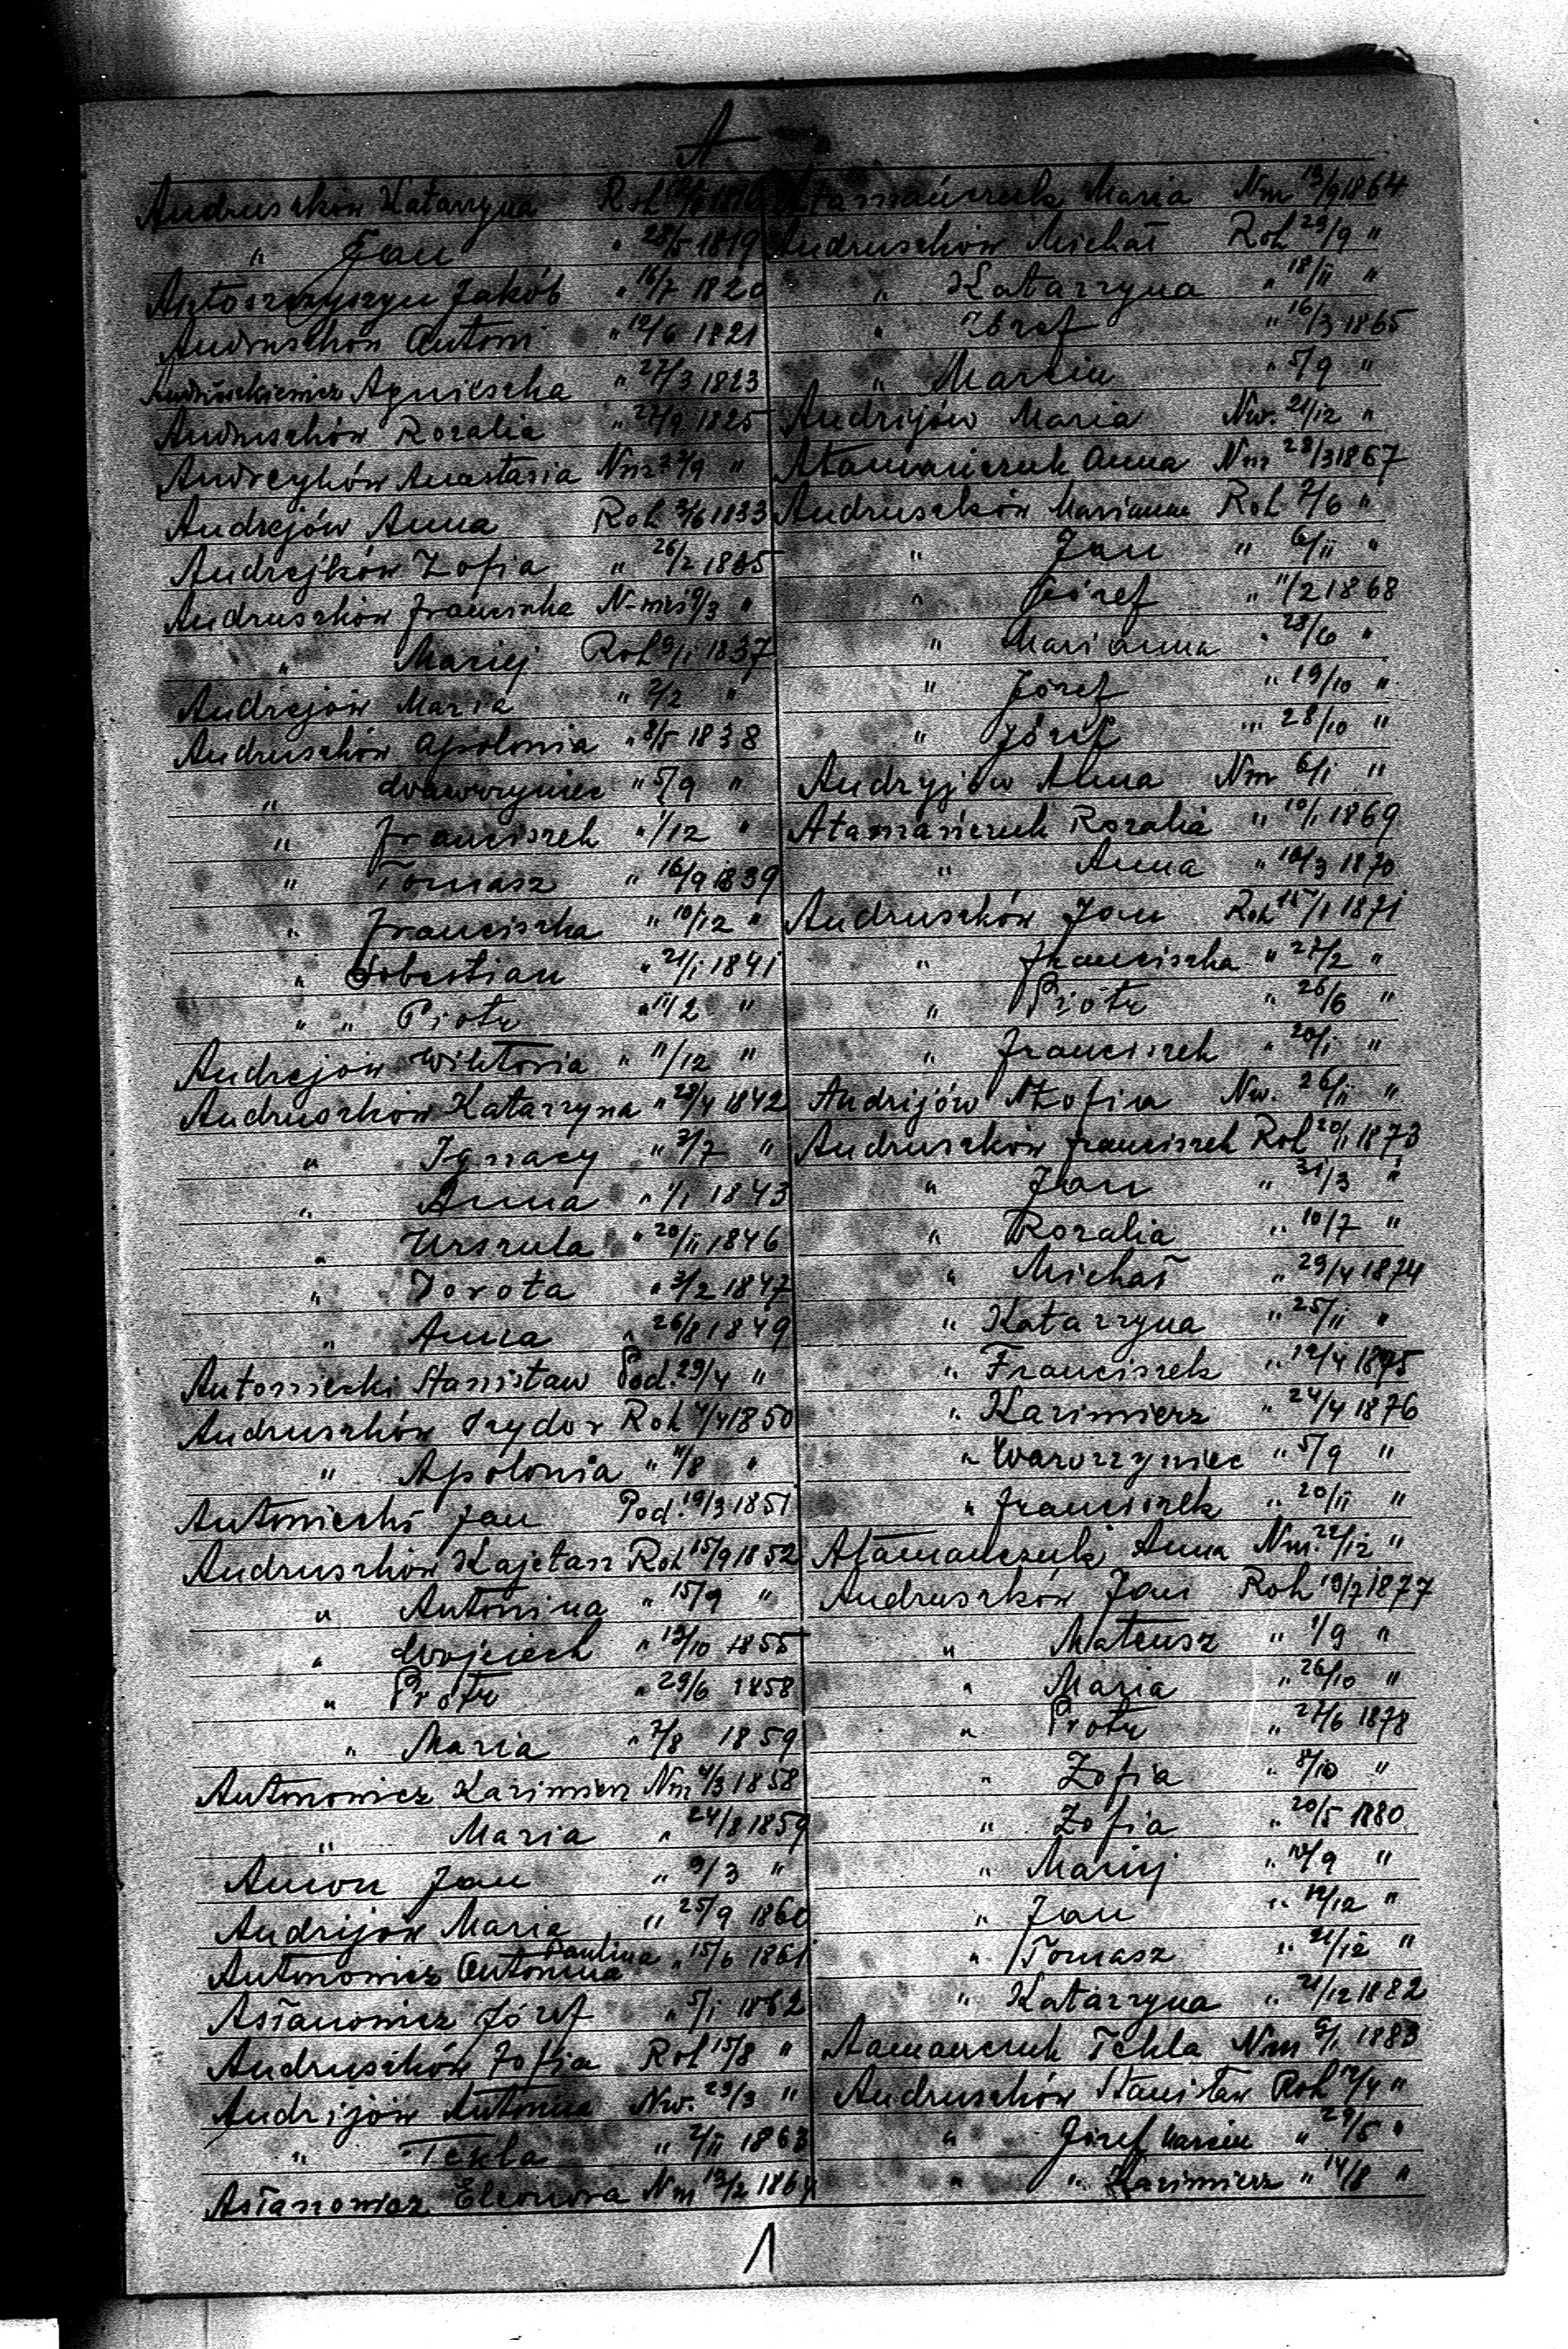 A
Andruszków Katarzyna Roh 1816
" Jan " 28/5 1819
Jakób " 16/7 1820
Andruszków Antoni " 12/6 1821
Agnieszka " 27/3 1823
Andruszków Rozalia " 27/9 1825
Andreyków Anastazia Nm /9 "
Andrejów Anna Roh 2/6 1833
Andrejków Zofia " 26/2 1835
Andruszków Franciszka /3 "
" Maciej Roh 9/1 1837
Andrejów Maria " 2/2 "
Andruszków Apolonia " 8/5 1838
" Wawrzyniec " 5/9 "
" Franciszek " 1/12 "
" Tomasz " 16/9 1839
" Franciszka " 10/12 "
" Sebestian " 21/1 1841
" " Piotr " 11/2 "
Andrejów Wiktoria " 11/12 "
Andruszków Katarzyna " 28/4 1842
" Ignacy " 3/7 "
" Anna " 1/1 1843
" Urszula " 20/11 1846
" Dorota " 3/2 1847
" Anna " 26/8 1849
Antoniecki Stanisław Pod. 29/4 "
Andruszków Izydor Roh 4/4 1850
" Apolonia " 4/8 "
Antoniecki Jan Pod. 19/3 1851
Andruszków Kajetan Roh 15/9 1852
" Antonina " 15/9 "
" Wojciech " 13/10 1855
" Piotr " 29/6 1858
" Maria " 7/8 1859
Antonowicz Kazimierz Nm 4/3 1858
" Maria " 24/8 1859
Jan " 9/3 "
Andrijów Maria " 25/9 1860
Antonowicz Antonina Paulina " 15/6 1861
Asłanowicz Józef " 5/1 1862
Andruszków Zofia Roh 15/8 "
Andrijów Antonina Nw. 29/3 "
" Tekla " 2/11 1863
Asłanowicz Eleonora Nm 13/2 1864
Atamańczuk Maria Nm 13/9 1864
Andruszków Michał Roh 29/9 "
" Katarzyna " 18/11 "
" Józef " 16/3 1865
" Marcin " 5/9 "
Andrijów Maria Nw. 21/12 "
Atamańczuk Anna Nm 28/3 1867
Andruszków Marianna Roh 2/6 "
" Jan " 6/11 "
" Józef " 11/2 1868
" Marianna " 23/6 "
" Józef " 19/10 "
" Józef " 28/10 "
Andryjów Anna Nm 6/1 "
Atamańczuk Rozalia " 10/1 1869
" Anna " 10/3 1870
Andruszków Jan Roh 15/1 1871
" Franciszka " 27/2 "
" Piotr " 26/6 "
" Franciszek " 20/1 "
Andrijów Zofia Nw. 26/11 "
Andruszków Franciszek Roh 20/1 1873
" Jan " 31/3 "
" Rozalia " 10/7 "
" Michał " 29/4 1874
" Katarzyna " 25/11 "
" Franciszek " 12/4 1875
" Kazimierz " 24/4 1876
" Wawrzyniec " 5/9 "
" Franciszek " 20/11 "
Atamańczuk Anna Nm. 22/12 "
Andruszków Jan Roh 19/7 1877
" Mateusz " 1/9 "
" Maria " 26/10 "
" Piotr " 27/6 1878
" Zofia " 8/10 "
" Zofia " 20/5 1880
" Maciej " 10/9 "
" Jan " 12/12 "
" Tomasz " 21/12 "
" Katarzyna " 21/12 1882
Aamanczuk Tekla Nm 6/1 1883
Andruszków Stanisław Roh 12/4 "
" Józef Marcin " 29/5 "
" " Kazimierz " 14/8 "
1